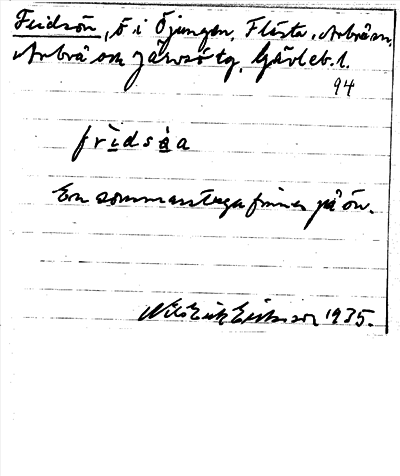 Fridsön, ö i Öjungen, Flästa, Arbrå sn,
Arbrå och Järvsö tg, Gävleb. l.
94
frìdsàa
En sommarstuga finnes på ön.
Nils Erik Eriksson 1935.